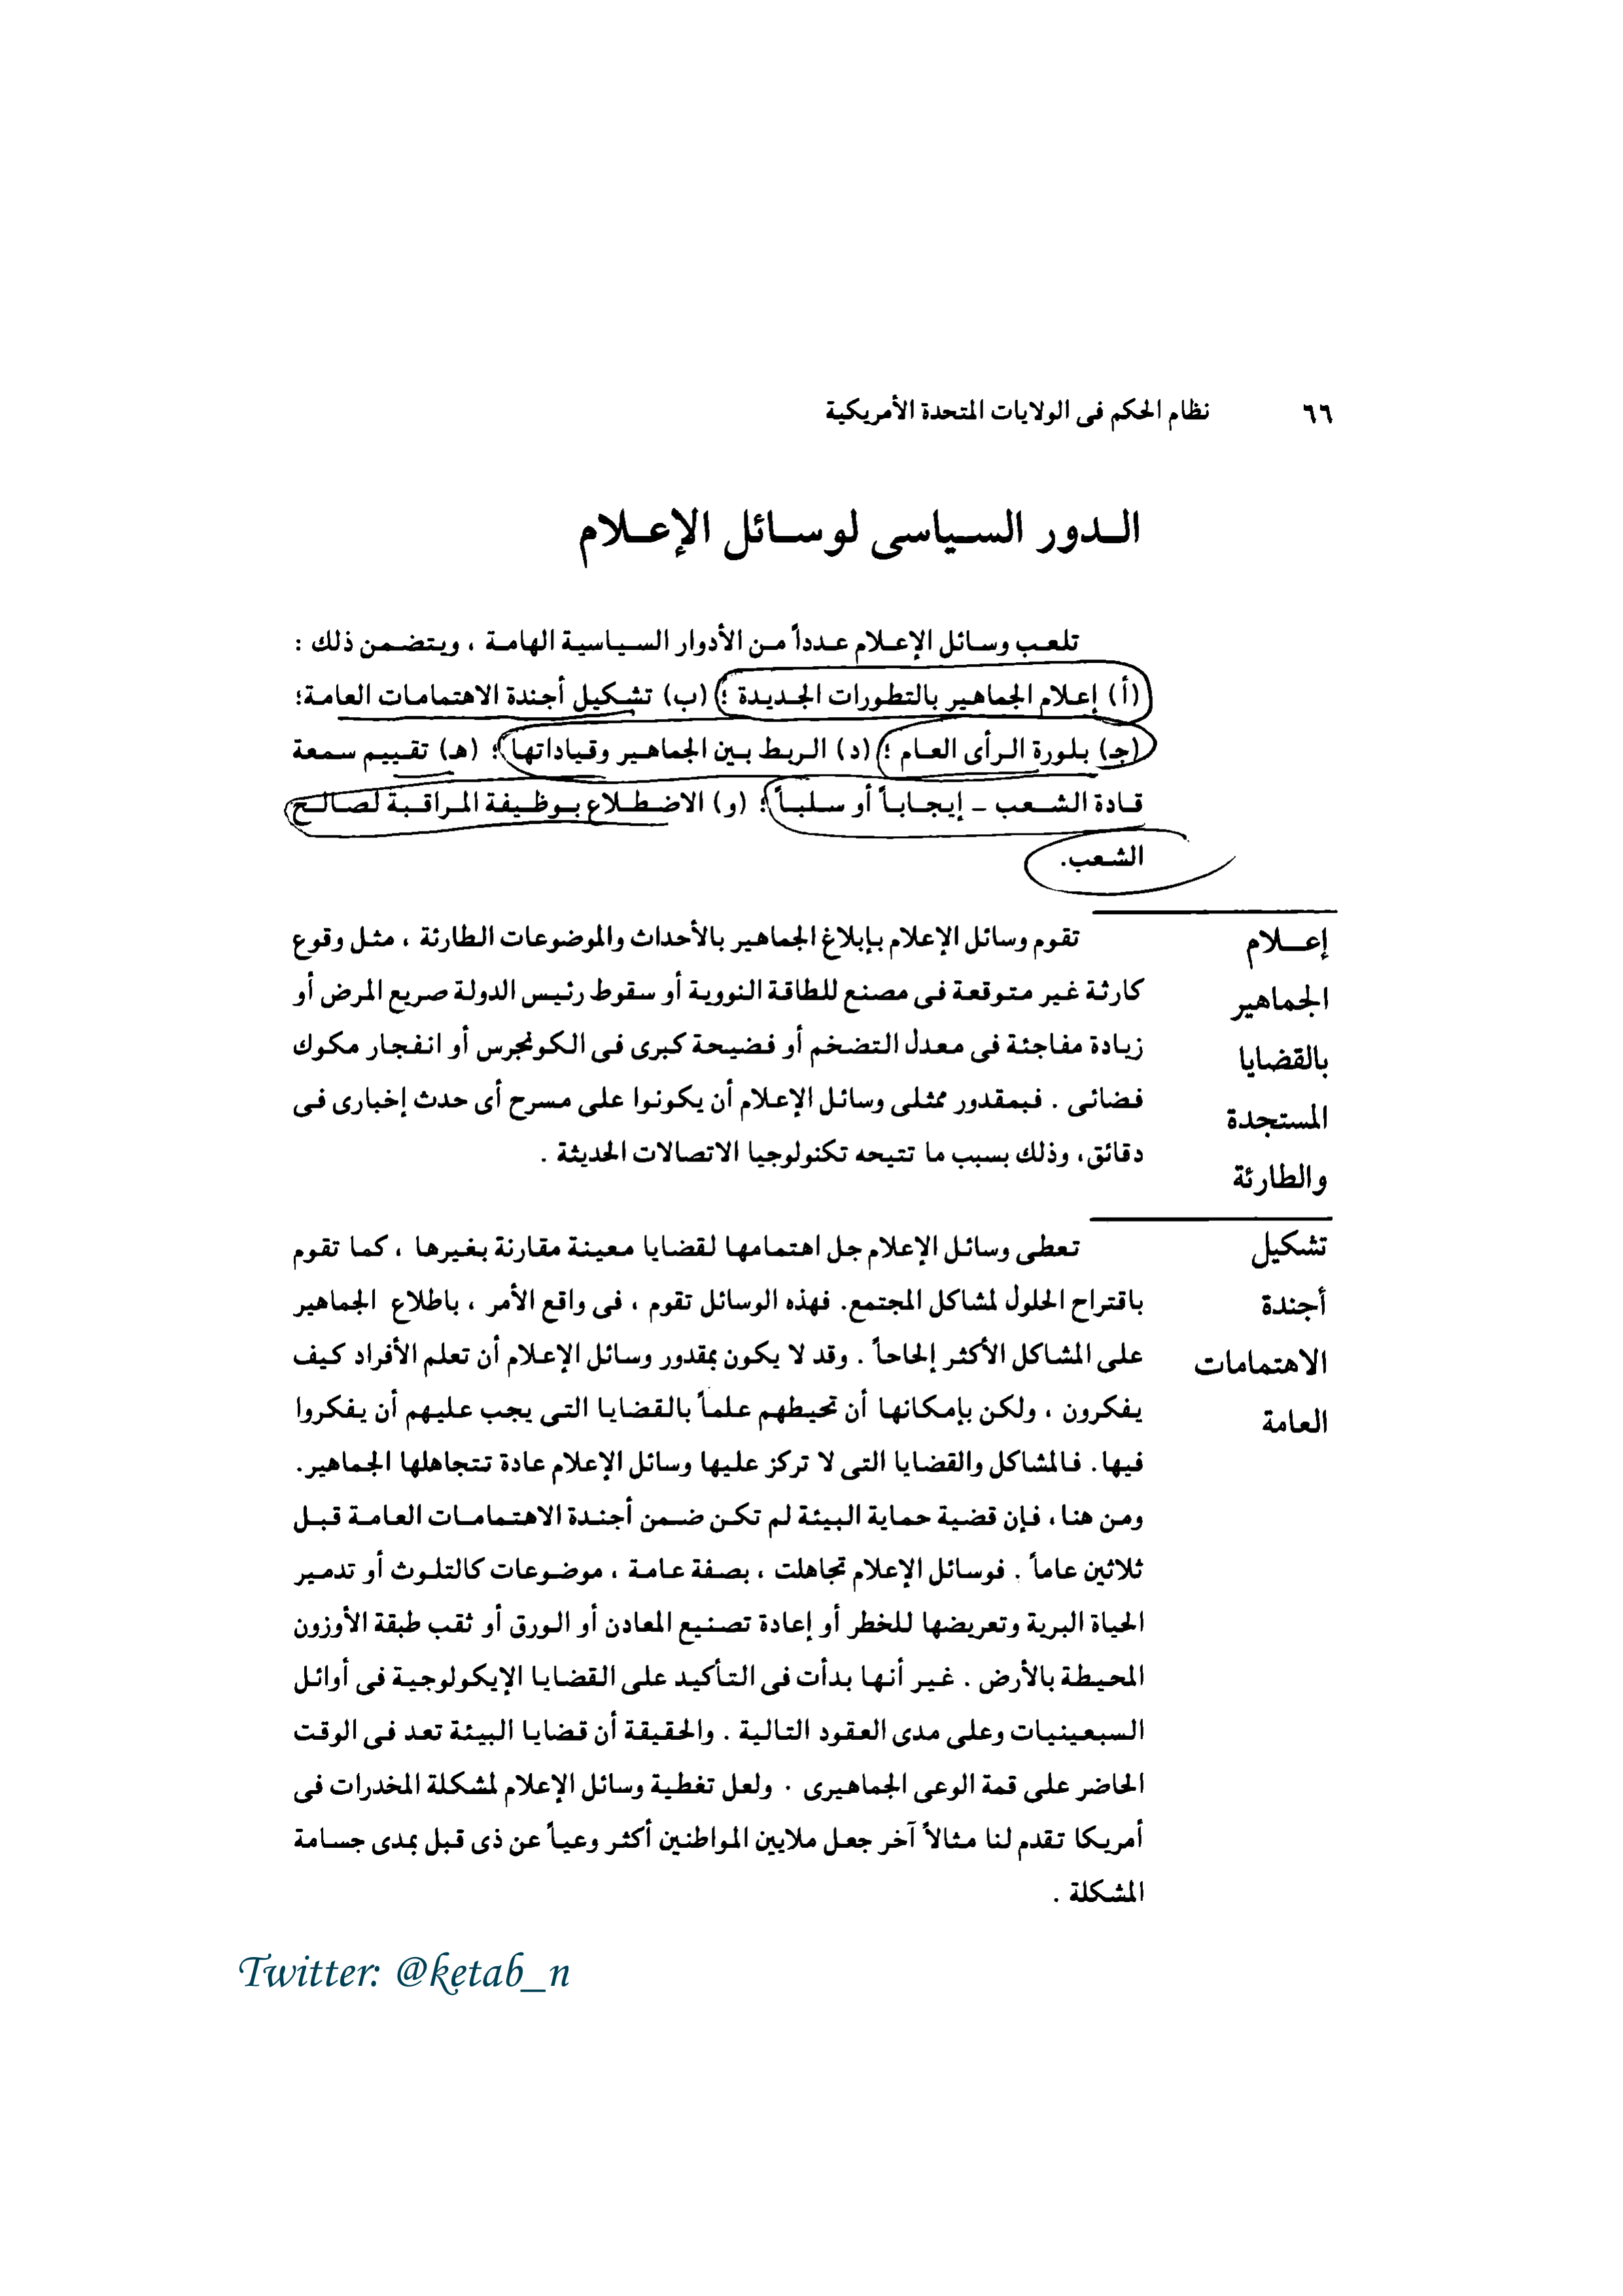 ٦٦ نظام الحكم فى الولايات المتحدة الأمريكية
الـدور السـياسى لوسـائل الإعـلام
تلعـب وسـائل الإعـلام عـدداً مـن الأدوار السـيـاسـية الهامـة ، ويـتضـمـن ذلك :
(أ) إعـلام الجمـاهـير بالتطورات الجـديـدة ؛ (ب) تشـكيل أجنـدة الاهتـمامـات العامـة؛
(جـ) بـلورة الـرأى العـام ؛ (د) الـربـط بـين الجماهير وقـياداتـها ؛ (هـ) تقـييـم سـمعة
قـادة الشـعب – إيـجـابـاً أو سـلبـاً ؛ (و) الاضـطـلاع بـوظـيفة المـراقبـة لصـالـح
الشـعب.
إعــلام
الجماهير
بالقضايا
المستجدة
والطارئة
تقوم وسائل الإعلام بـإبلاغ الجماهير بالأحداث والموضوعات الطارئة ، مثـل وقوع
كارثـة غـير متـوقعـة فـى مصنع للطاقـة النوويـة أو سقوط رئـيس الدولـة صريع المرض أو
زيـادة مفاجئـة فـى معـدل التـضخم أو فـضـيحة كبرى فـى الكونجرس أو انفـجار مكوك
فـضائـى . فـبمـقدور ممثلـى وسائـل الإعـلام أن يكـونـوا علـى مسرح أى حدث إخبـارى فـى
دقائق، وذلك بسبب ما تتيحه تكنولوجيا الاتصالات الحديثة .
تشكيل
أجندة
الاهتمامات
العامة
تـعطـى وسائـل الإعـلام جل اهتـمامـها لقضايـا معـينة مقارنة بـغيرها ، كمـا تقوم
باقتراح الحلول لمشاكل المجتمع. فهذه الوسائل تقوم ، فى واقع الأمر ، باطلاع الجماهير
على المشاكل الأكثر إلحاحاً . وقد لا يكون بمقدور وسائل الإعلام أن تعلم الأفراد كيف
يـفكـرون ، ولكـن بـإمكـانـها أن تحيـطهم علـماً بالقضايـا التـى يجب علـيهم أن يـفكـروا
فيها. فـالمشاكل والقضايا التى لا تركز عليها وسائل الإعلام عادة تـتجاهلها الجماهير.
ومن هنا، فـإن قضية حماية البيئة لم تكـن ضـمن أجنـدة الاهـتمامـات العامـة قـبـل
ثلاثين عاماً . فوسائل الإعلام تجاهلت ، بصفة عـامـة ، موضـوعات كالتلـوث أو تدمـير
الحياة البرية وتعريضها للخطر أو إعادة تصنـيع المعادن أو الـورق أو ثقب طبقة الأوزون
المحيطة بالأرض . غـير أنـها بدأت فـى التـأكيد على القضايا الإيـكولوجـية فـى أوائـل
السبعينيات وعلـى مدى العقود التالية . والحقيقة أن قضايا البيئة تعد فـى الوقت
الحاضر على قمة الوعى الجماهيرى . ولعل تغطية وسائل الإعلام لمشكلة المخدرات فى
أمريكا تقدم لنا مثالاً آخر جعل ملايين المواطنين أكثر وعياً عن ذى قبل بمدى جسامة
المشكلة .
Twitter: @ketab_n